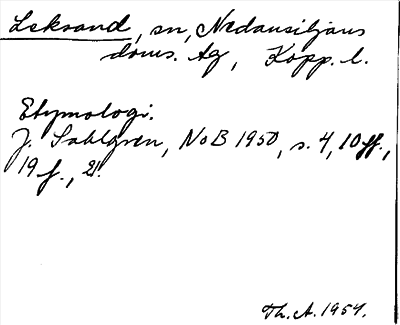 Leksand, sn, Nedansiljans
doms. tg, Kopp. l.
Etymologi.
J. Sahlgren, NoB 1950, s. 4, 10 ff.,
19 f., 21.
Th. A. 1954.